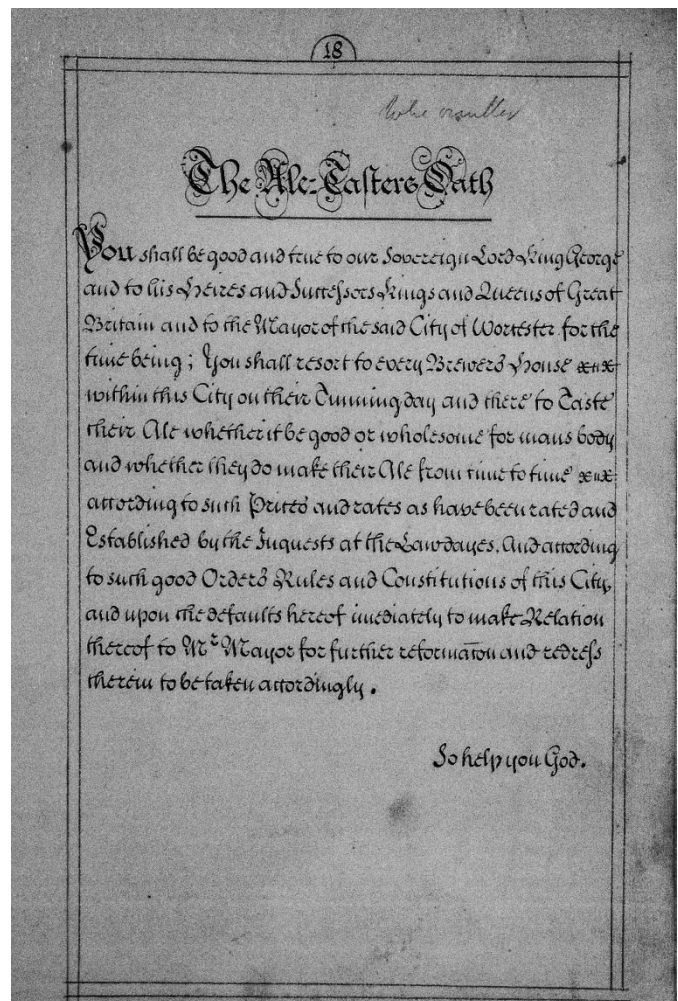 18
The Ale=Tasters Oath
You shall be good and true to our Sovereign Lord King George
and to his Heires and Successors Kings and Queens of Great
Britain and to the Mayor of the said City of Worcester for the
time being; You shall resort to every Brewers House
within this City on their Tunning day and there to Taste
their Ale whether it be good or wholesome for mans body
and whether they do make their Ale from time to time
according to such Prices and rates as have been rated and
Established by the Inquests at the Lawdayes. And according
to such good Orders Rules and Constitutions of this City,
and upon the defaults hereof imediately to make Relation
thereof to Mr Mayor for further reformacon and redress
therein to be taken accordingly.
So help you God.